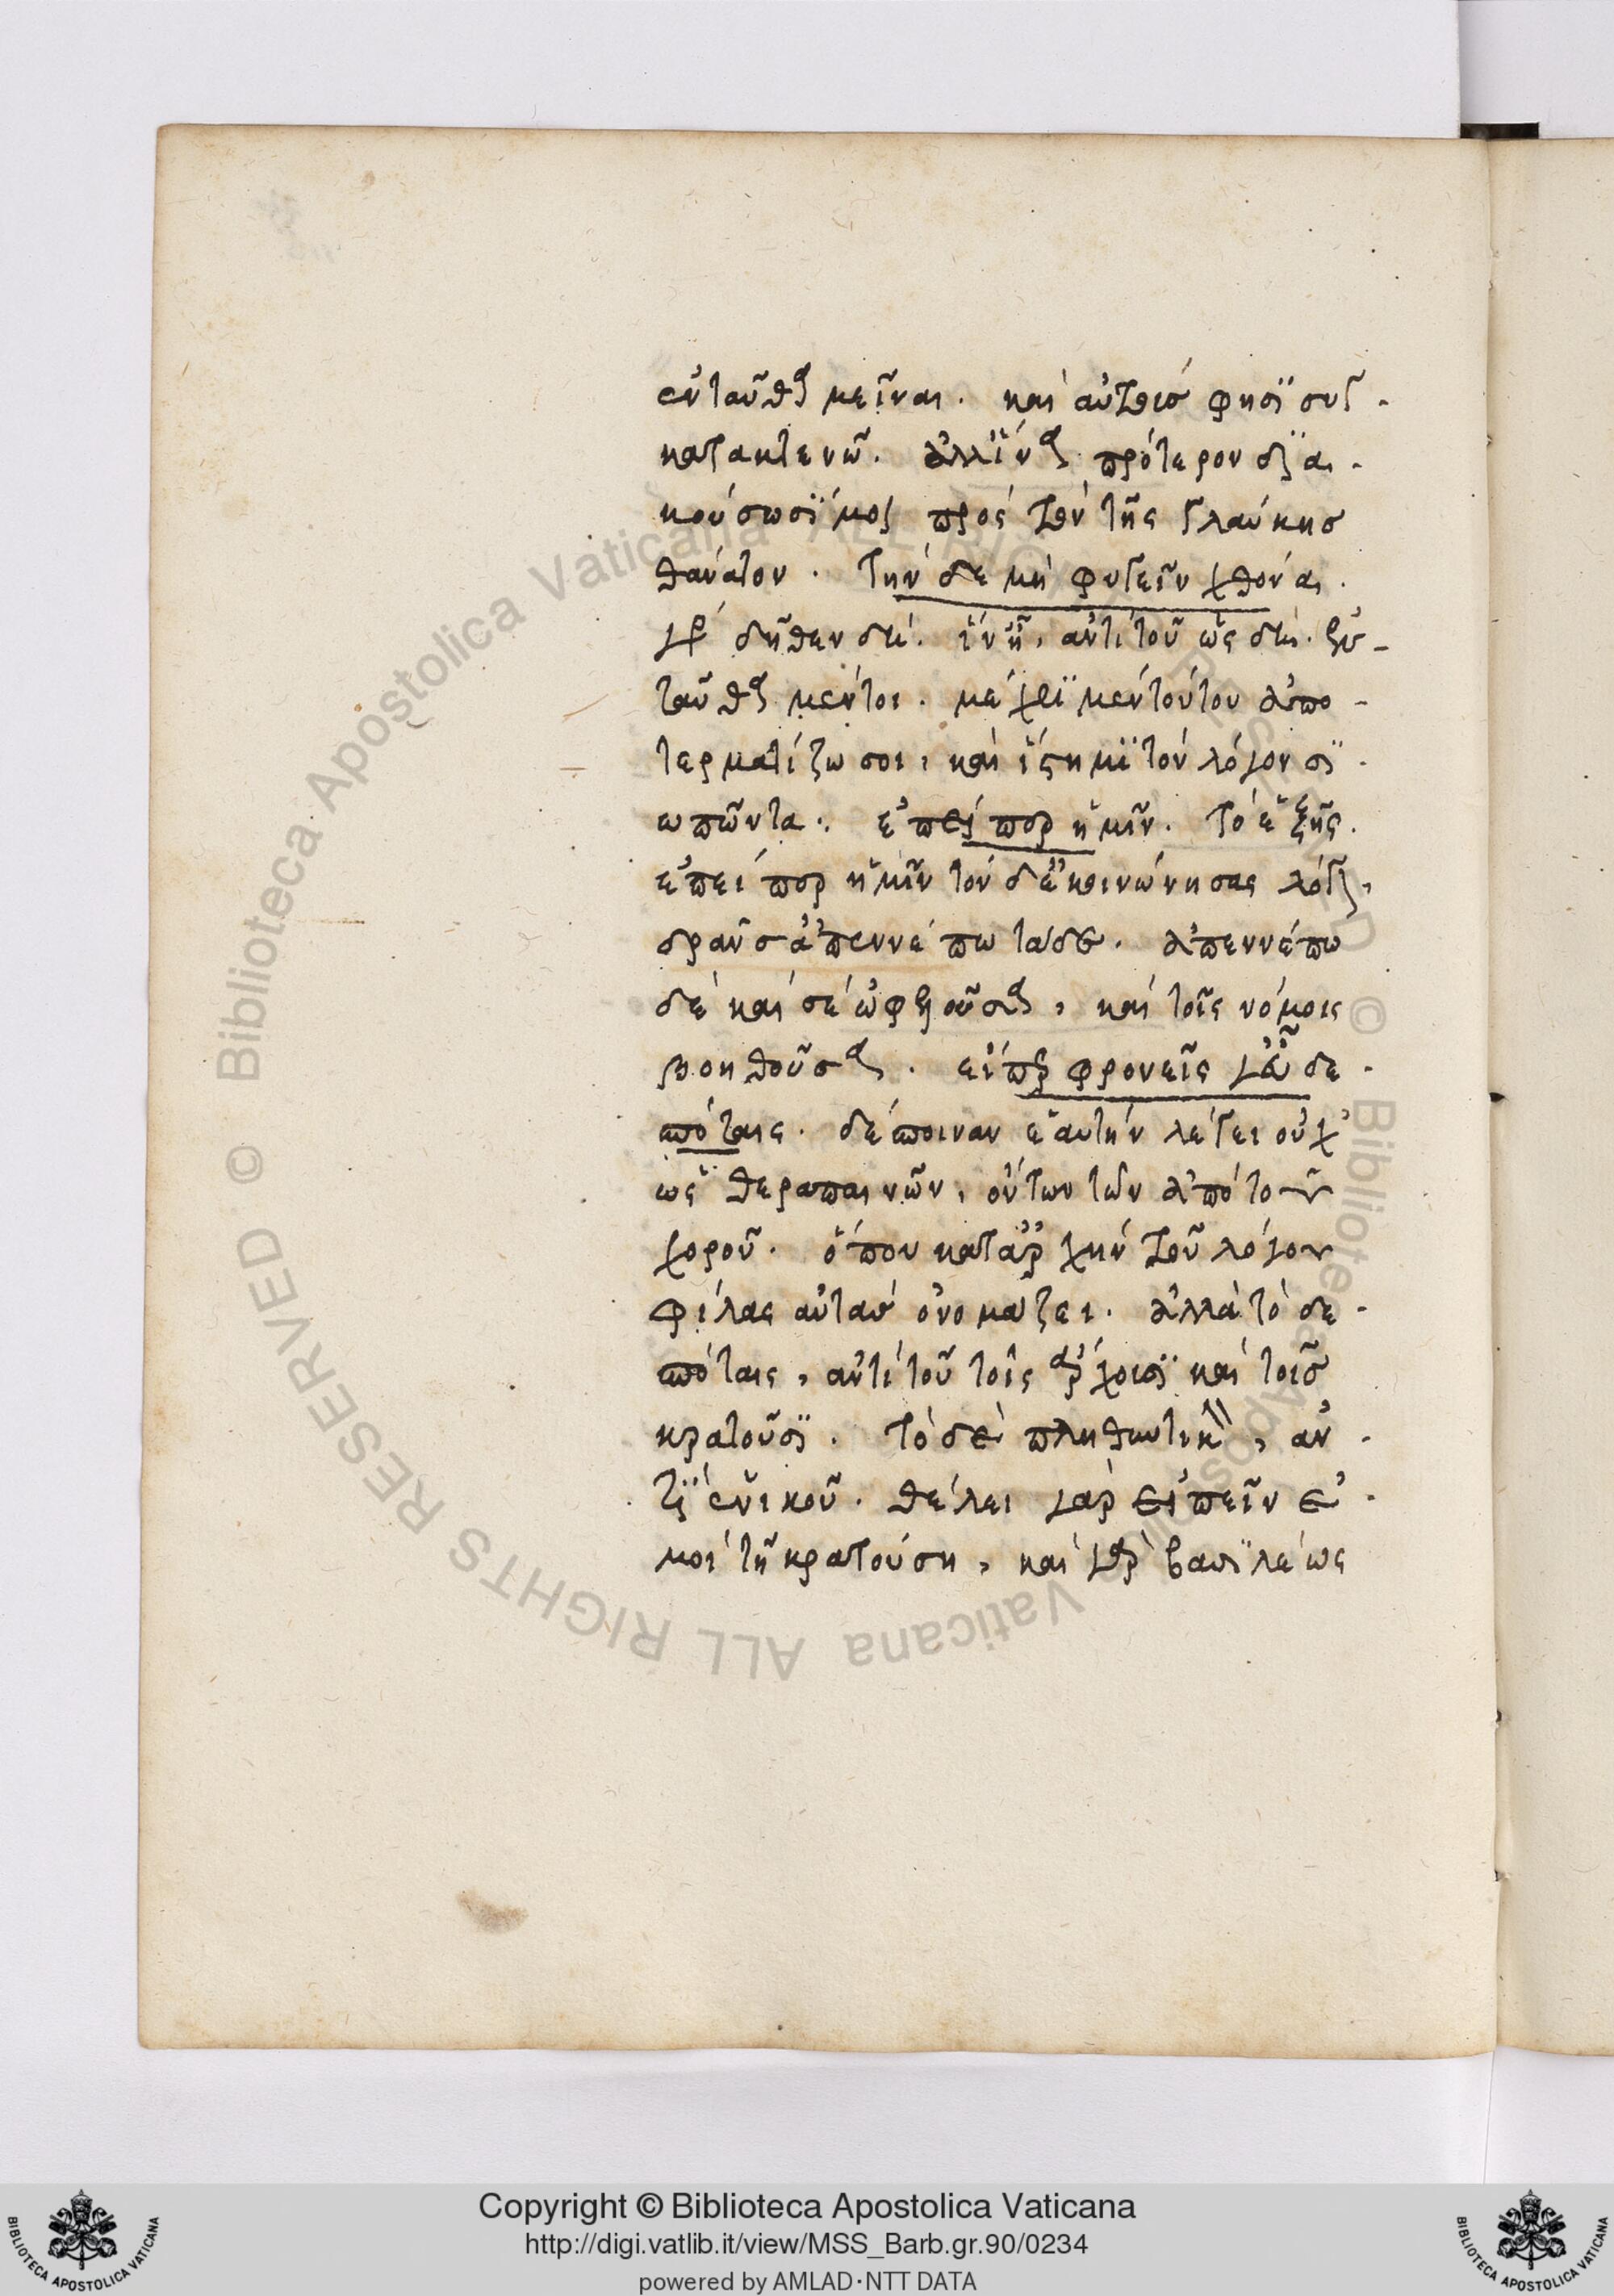 ἐνταῦθα μεῖναι. καὶ αὐτοὺς φησὶ συγ-
κατακτενῶ. ἀλλ' ἵνα πρότερον δια-
κούσωσί μου πρὸς τὸν τῆς Γλαύκης
θάνατον. τήνδε μὴ φυγεῖν χθόνα.
γρ δῆθεν δέ. ἵν' ᾖ, ἀντὶ τοῦ ὡς δή. ἐν-
ταῦθα μέντοι. μέχρι μὲν τούτου ἀπο-
τερματίζω σοι, καὶ ἵστημι τὸν λόγον σι-
ωπῶντα. ἐπείπερ ἡμῖν. τὸ ἑξῆς.
ἐπείπερ ἡμῖν τόνδ' ἐκοινώνησας λόγον,
δρᾶν σ' ἀπεννέπω τάδε. ἀπεννέπω
δὲ καὶ σὲ ὠφελοῦσα, καὶ τοῖς νόμοις
βοηθοῦσα. εἴπερ φρονεῖς εὖ δε-
σπόταις. δέσποιναν ἑαυτὴν λέγει οὐχ
ὡς θεραπαινῶν, οὐσῶν τῶν ἀπὸ τοῦ
χοροῦ. ὅπου κατ' ἀρχὴν τοῦ λόγου
φίλας αὐτὰς ὀνομάζει. ἀλλὰ τὸ δε-
σπόταις, ἀντὶ τοῦ τοῖς ἄρχουσι καὶ τοῖς
κρατοῦσι. τὸ δὲ πληθυντικὸν, ἀν-
τὶ ἑνικοῦ. θέλει γὰρ εἰπεῖν ἐ-
μοὶ τῇ κρατούσῃ, καὶ γὰρ βασιλέως
Copyright © Biblioteca Apostolica Vaticana
http://digi.vatlib.it/view/MSS_Barb.gr.90/0234
powered by AMLAD·NTT DATA
BIBLIOTECA APOSTOLICA VATICANA
BIBLIOTECA APOSTOLICA VATICANA
© Biblioteca Apostolica Vaticana ALL RIGHTS RESERVED
© Biblioteca Apostolica Vaticana ALL RIGHTS RESERVED